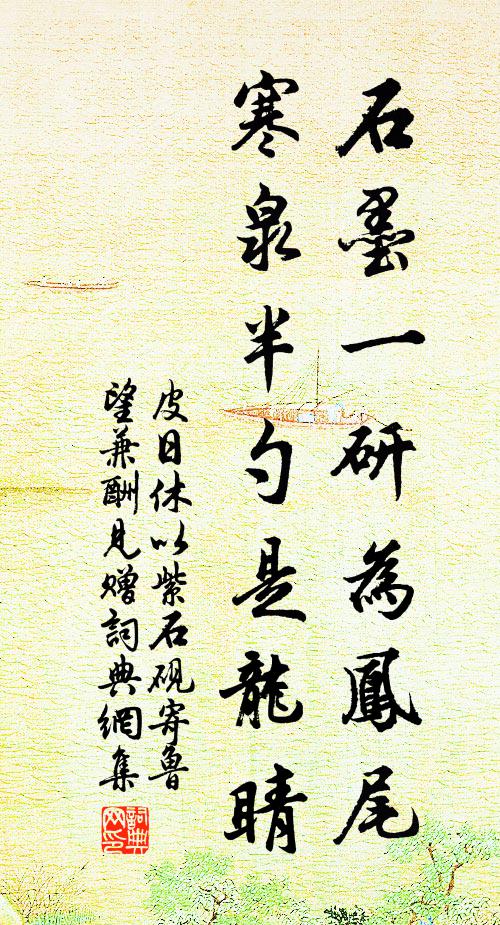 石墨一研為鳳尾
寒泉半勺是龍睛
皮日休以紫石硯寄魯
望兼酬見贈詞典網集
詞典
网印